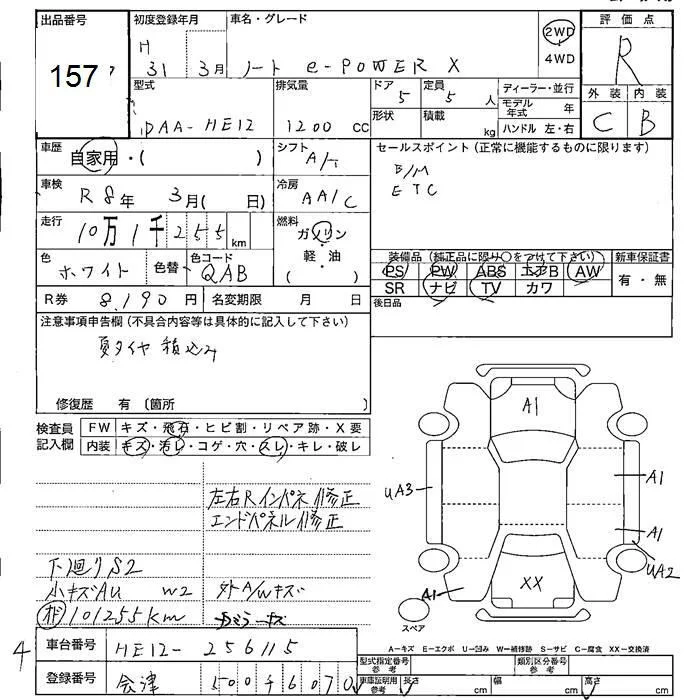 出品番号 初度登録年月 車名・グレード 評価点
157
H 31 3月 ノート e-POWER X 2WD 4WD R
型式 排気量 ドア 定員 ディーラー・並行 外装 内装
5 5人 モデル年式 年
DAA-HE12 1200cc 形状 積載 kg ハンドル 左・右 C B
車歴 自家用・( ) シフト A/T セールスポイント(正常に機能するものに限ります)
B/M
ETC
車検 R8年 3月( 日) 冷房 AA/C
走行 10万1千255km 燃料 ガソリン・軽油 ( )
装備品(純正品に限り○をつけて下さい) 新車保証書
色 ホワイト 色替 色コード QAB
PS PW ABS エアB AW 有・無
SR ナビ TV カワ
R券 8,190円 名変期限 月 日 後日品
注意事項申告欄(不具合内容等は具体的に記入して下さい)
夏タイヤ積込み
修復歴 有〔箇所 〕
検査員記入欄 FW キズ・飛石・ヒビ割・リペア跡・X要
内装 キズ・汚レ・コゲ・穴・スレ・キレ・破レ
左右Rインパネ修正
エンドパネル修正
下廻りS2
小キズAU W2 外A/Wキズ
101255km
A1
UA3 A1
A1
UA2
A1 XX
スペア
4 車台番号 HE12-256115
A-キズ E-エクボ U-凹み W-補修跡 S-サビ C-腐食 XX-交換済
型式指定番号 参考 類別区分番号 参考
登録番号 会津 500 6070
車庫証明用 参考 長さ cm 幅 cm 高さ cm